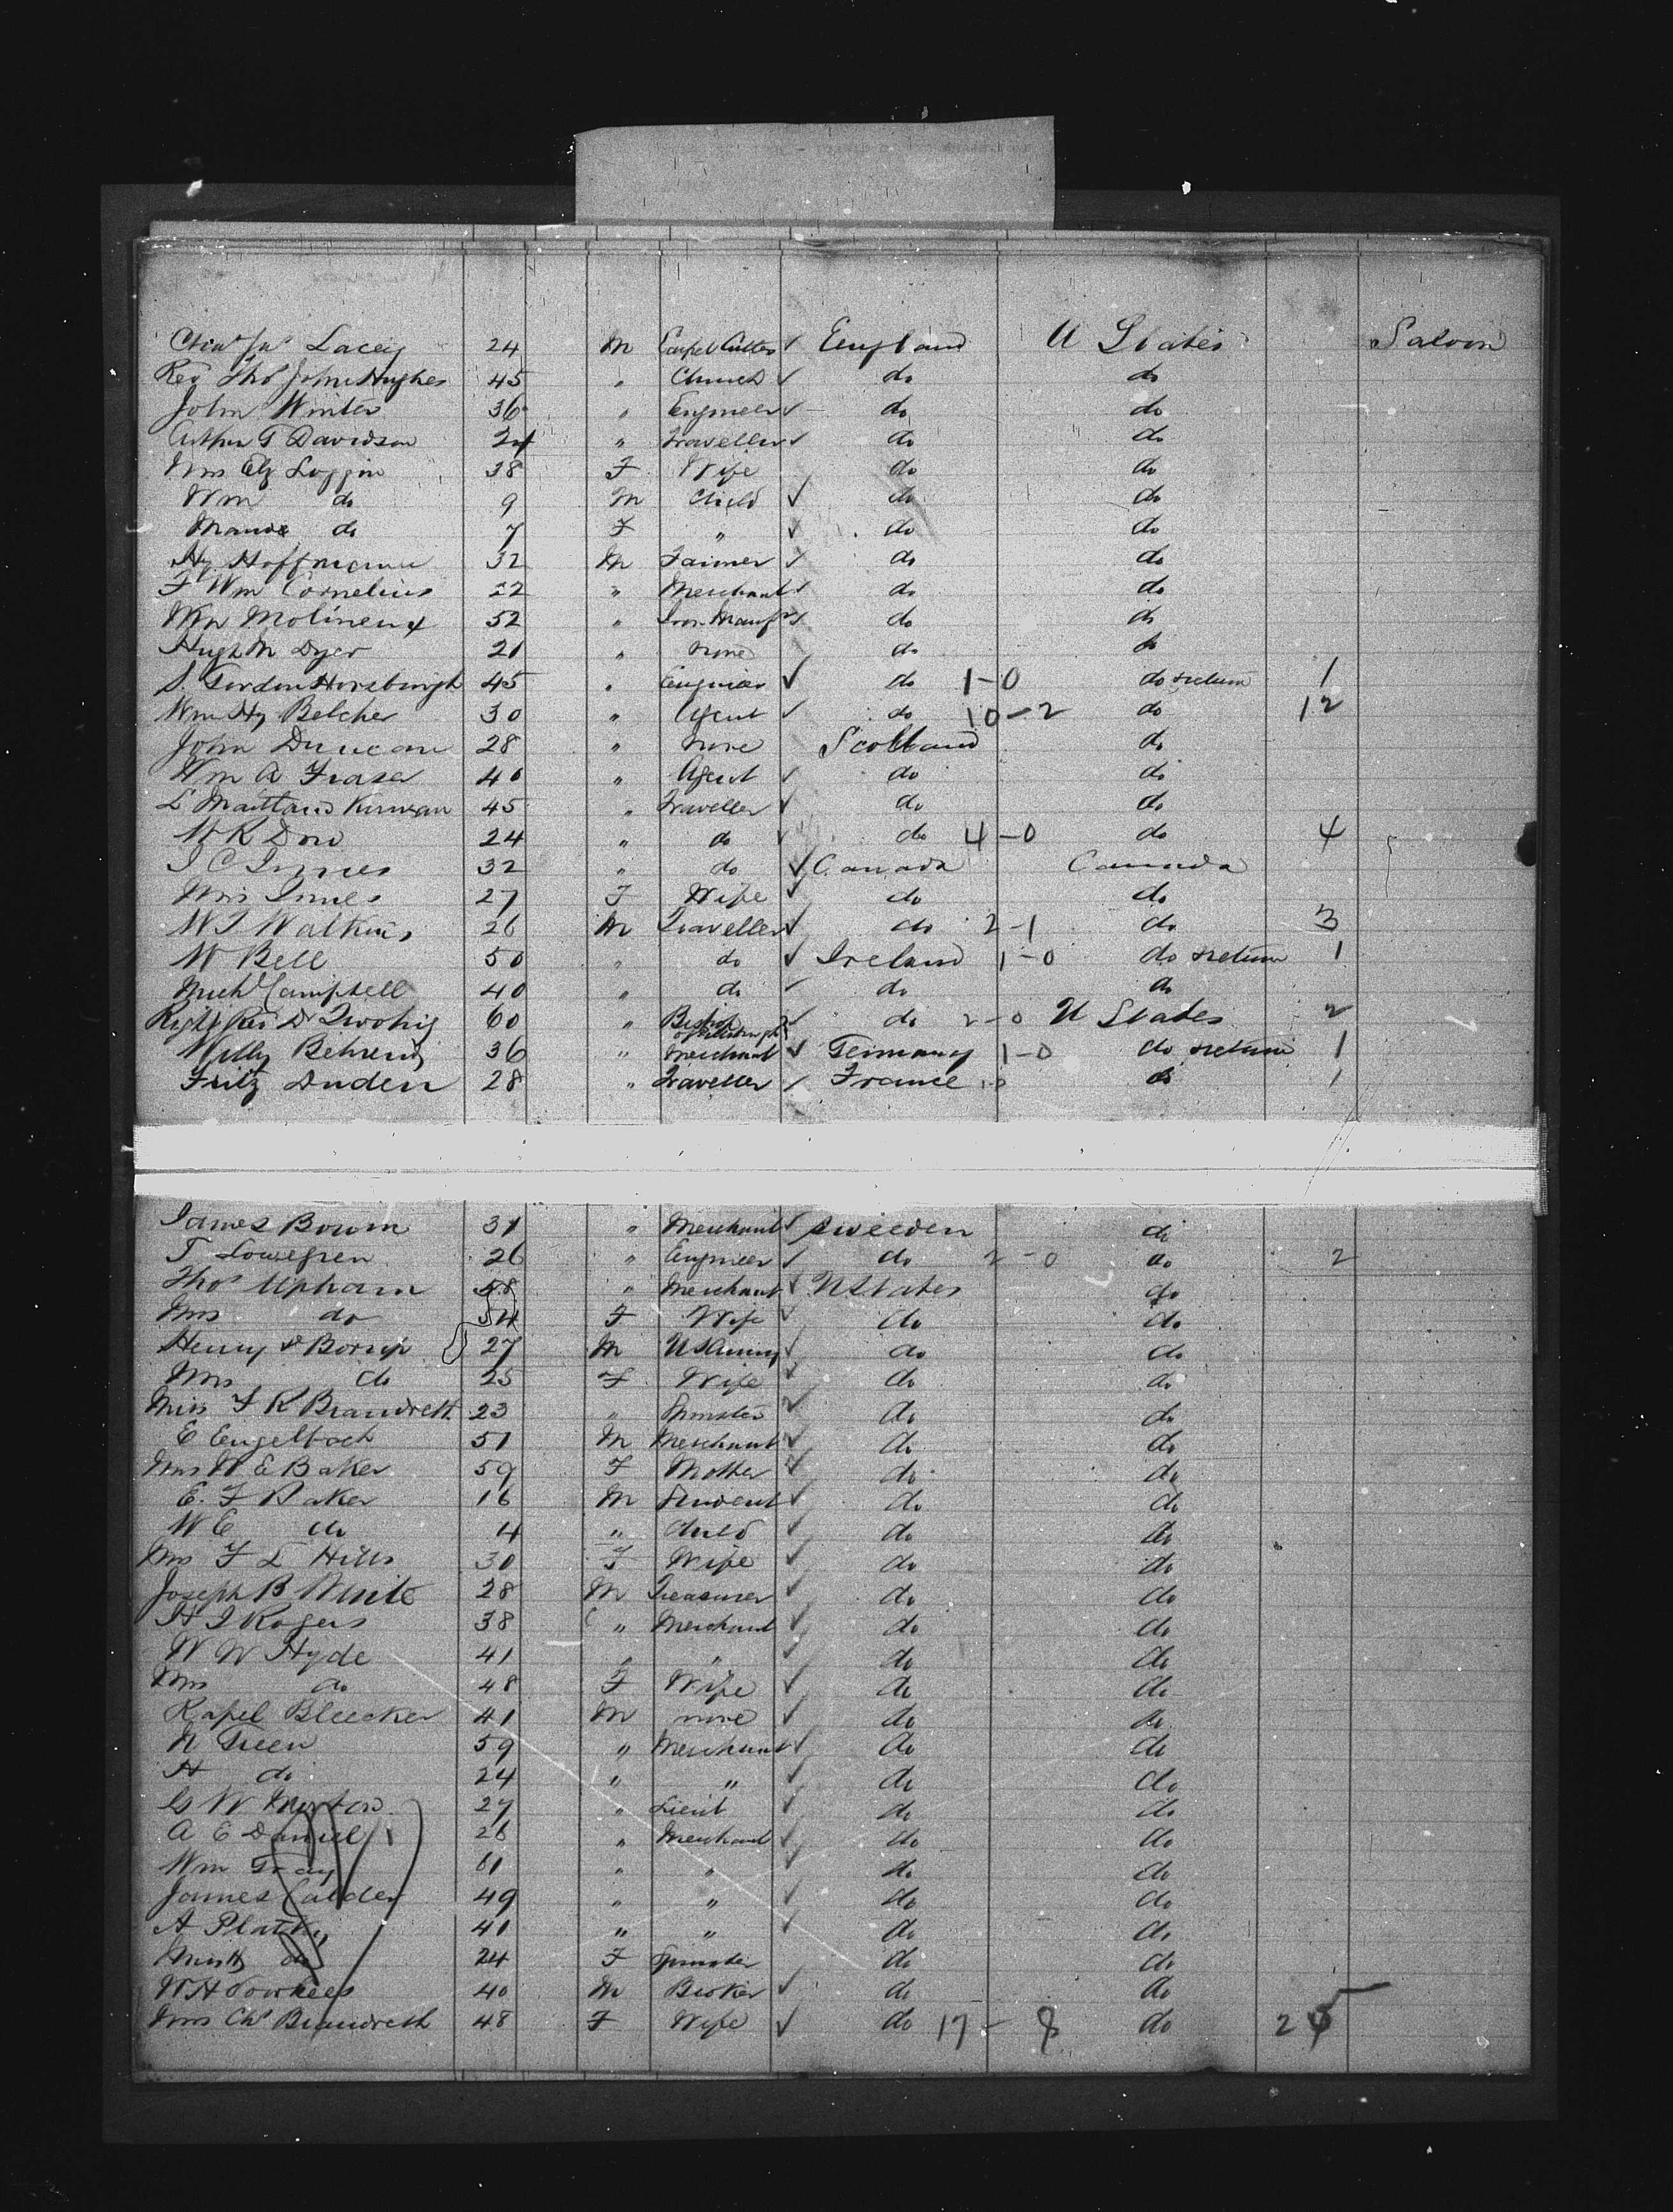 Chas Jno Lacey 24 M Carpet Cutter ✓ England U States Saloon
Rev Thos John Hughes 45 " Church ✓ do do
John Winter 36 " Engineer ✓ do do
Arthur G Davidson 24 " Traveller ✓ do do
Mrs Elz Loggin 38 F Wife do do
Wm do 9 M Child ✓ do do
Maude do 7 F " ✓ do do
Hy Hoffmann 32 M Farmer ✓ do do
F Wm Cornelius 22 " Merchant ✓ do do
Wm Molineux 52 " Iron Manufr ✓ do do
Hugh M Dyer 21 " none do do
S. Gordon Horsburgh 45 " Engineer ✓ do 1-0 do return 1
Wm Hy Belcher 30 " Agent ✓ do 10-2 do 12
John Duncan 28 " none Scotland do
Wm A Fraser 40 " Agent ✓ do do
L Maitland Kirwan 45 " Traveller ✓ do do
W K Dow 24 " do ✓ do 4-0 do 4
J C Innes 32 " do ✓ Canada Canada
Mrs Innes 27 F Wife ✓ do do
W T Watkins 26 M Traveller ✓ do 2-1 do 3
W Bell 50 " do ✓ Ireland 1-0 do return 1
Michl Campbell 40 " do ✓ do do
Right Rev Dr Twohig 60 " Bishop of Pittsburgh ✓ do 2-0 U States 2
Willy Behrend 36 " Merchant ✓ Germany 1-0 do return 1
Fritz Duden 28 " Traveller ✓ France 1-0 do 1
James Bowm 31 " Merchant ✓ Sweeden do
T Lowegren 26 " Engineer ✓ do 2-0 do 2
Thos Upham 58 " Merchant ✓ U States do
Mrs do 54 F Wife ✓ do do
Henry Borup 27 M US Army ✓ do do
Mrs do 25 F Wife ✓ do do
Miss F K Brandreth 23 " Spinster ✓ do do
E Engelbach 51 M Merchant ✓ do do
Mrs W E Baker 59 F Mother ✓ do do
E. F Baker 16 M Student ✓ do do
W E do 4 " Child ✓ do do
Mrs F L Hills 30 F Wife ✓ do do
Joseph B White 28 M Treasurer ✓ do do
H J Rogers 38 " Merchant ✓ do do
W W Hyde 41 " " ✓ do do
Mrs do 48 F Wife ✓ do do
Rafel Bleecker 41 M none ✓ do do
N Green 59 " Merchant ✓ do do
H do 24 " " ✓ do do
G W Merton 27 " Lieut ✓ do do
A E Daniel 26 " Merchant ✓ do do
Wm Gray 61 " " ✓ do do
James Calder 49 " " ✓ do do
A Platky 41 " " ✓ do do
Miss do 24 F Spinster do do
W H Voorhees 40 M Broker ✓ do do
Mrs Chs Brandreth 48 F Wife ✓ do 17-8 do 25